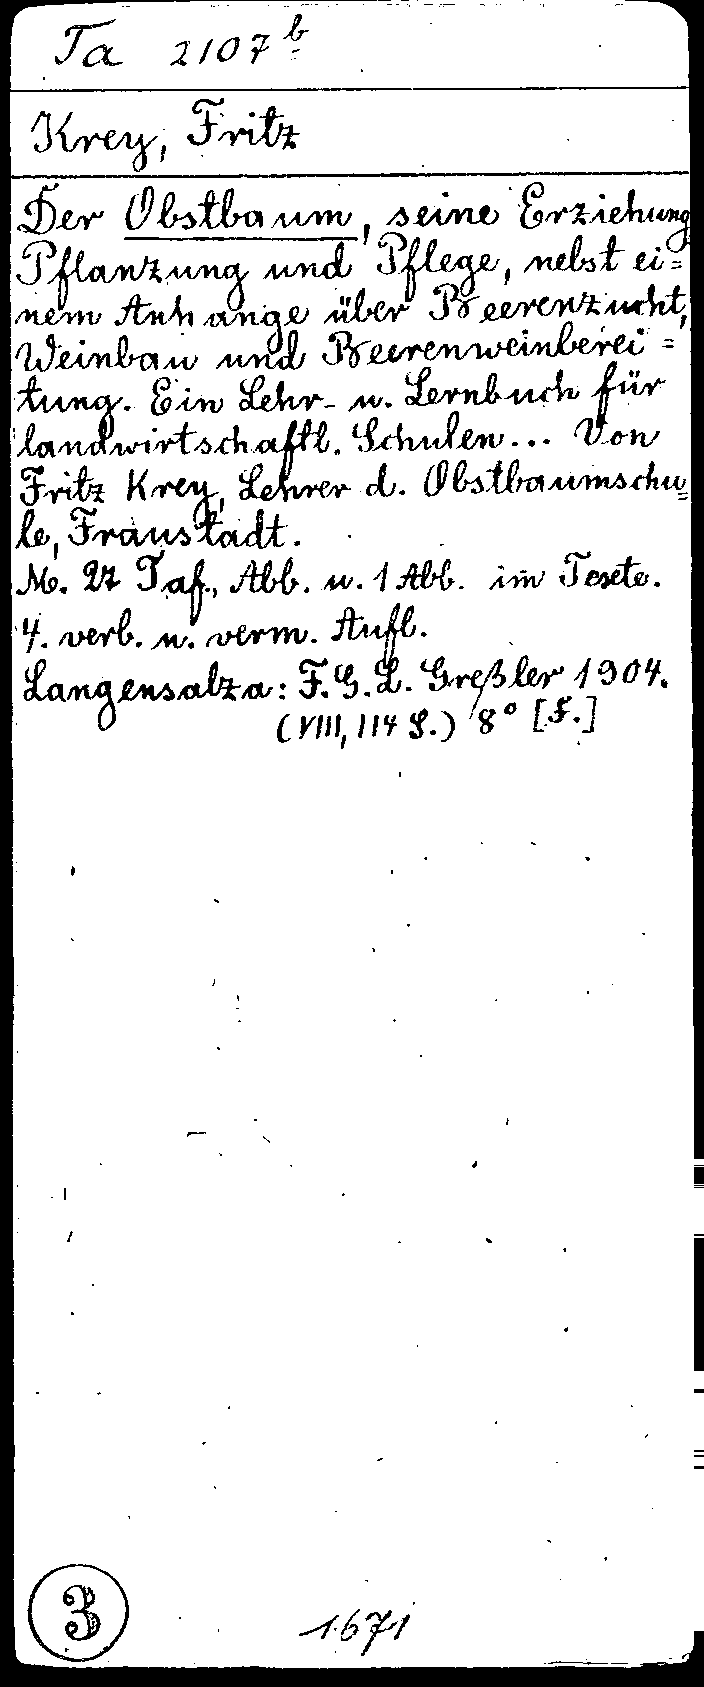 Ta 2107 b
Krey, Fritz
Der Obstbaum, seine Erziehung
Pflanzung und Pflege, nebst ei=
nem Anhange über Beerenzucht,
Weinbau und Beerenweinberei=
tung. Ein Lehr- u. Lernbuch für
landwirtschaftl. Schulen... Von
Fritz Krey, Lehrer d. Obstbaumschu=
le, Fraustadt.
M. 27 Taf., Abb. u. 1 Abb. im Texte.
4. verb. u. verm. Aufl.
Langensalza: F. G. L. Greßler 1904.
(VIII, 114 S.) 8° [F.]
3
1671